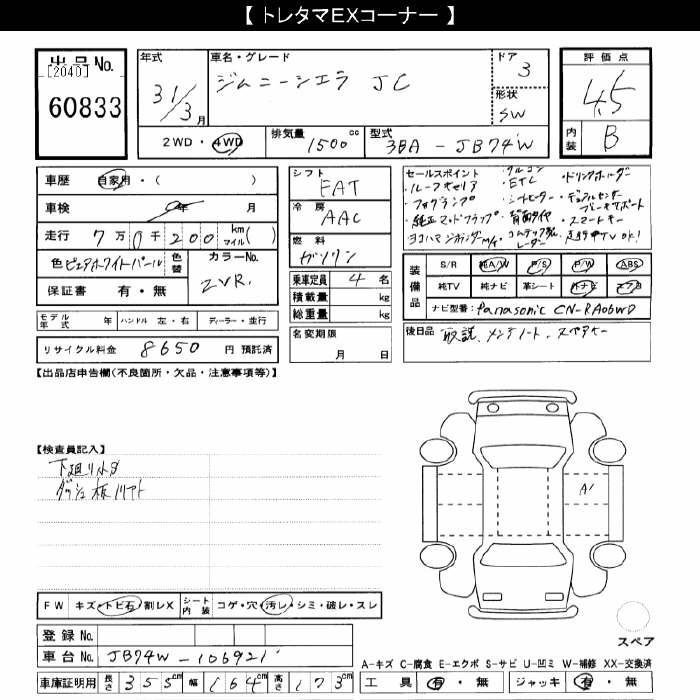 【 トレタマEXコーナー 】
出品No.
[2040]
60833
年式
31/3月
車名・グレード
ジムニーシエラ JC
ドア
3
形状
SW
評価点
4.5
内装
B
2WD・4WD
排気量
1500cc
型式
3BA - JB74W
車歴 自家用・( )
車検 年 月
走行 7万0千200km マイル( )
色 ピュアホワイトパール
色替
カラーNo.
ZVR.
保証書 有・無
モデル年式 年 ハンドル 左・右 ディーラー・並行
リサイクル料金 8650 円 預託済
シフト
FAT
冷房
AAC
燃料
ガソリン
乗車定員 4 名
積載量 kg
総重量 kg
名変期限
月 日
セールスポイント
・ETC
・ドリンクホルダー
・ルーフキャリア
・フォグランプ
・シートヒーター
・デュアルセンサーブレーキサポート
・純正マッドフラップ
・背面タイヤ
・スマートキー
ヨコハマジオランダーM/T
・コムテック製レーダー
装備品
S/R 純A/W P/S P/W ABS
純TV 純ナビ 革シート ナビ エアB
ナビ型番: Panasonic CN-RA06WD
後日品 取説、メンテノート、スペアキー
【出品店申告欄(不良箇所・欠品・注意事項等)】
【検査員記入】
下廻りサビ
FW キズ・トビ石・割レX
シート内装 コゲ・穴・汚レ・シミ・破レ・スレ
登録No.
車台No. JB74W-106921
車庫証明用 長さ 355cm 幅 164cm 高さ 173cm
A'
スペア
A-キズ C-腐食 E-エクボ S-サビ U-凹ミ W-補修 XX-交換済
工具 有・無 ジャッキ 有・無